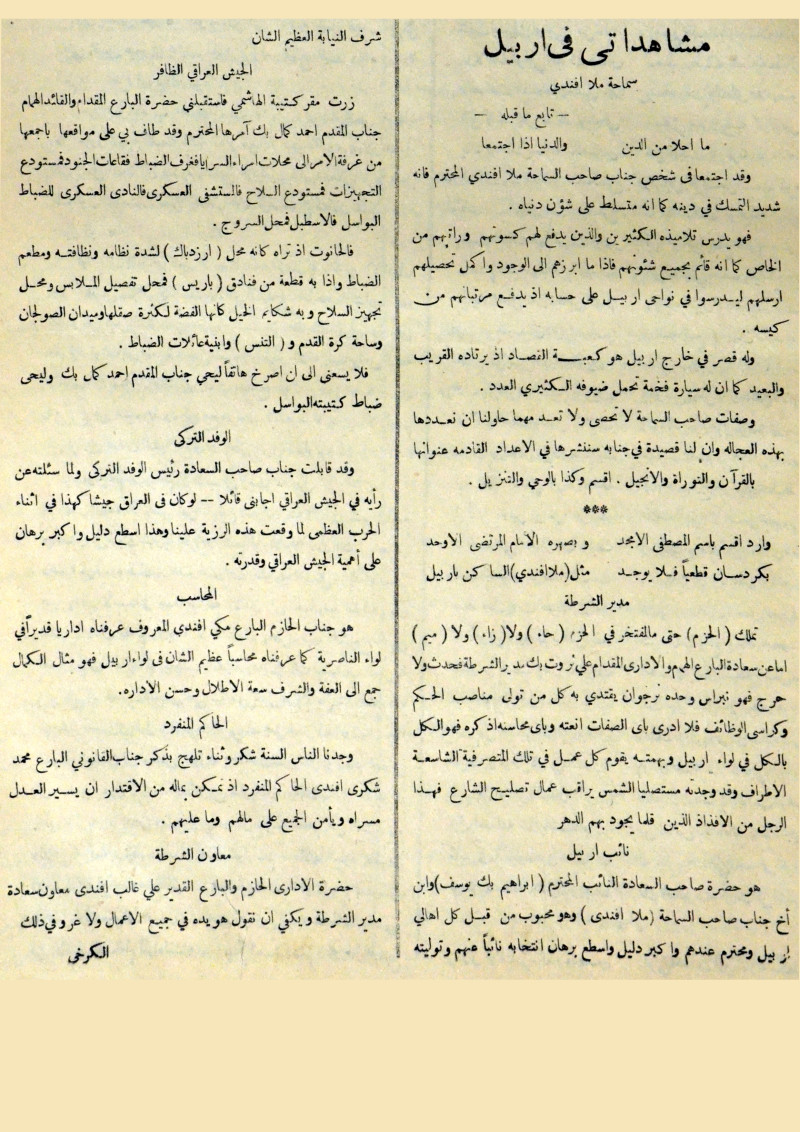 مشاهداتي في اربيل
سماحة ملا افندي
— تابع ما قبله —
ما احلا من الدين والدنيا اذا اجتمعا
وقد اجتمعا في شخص جناب صاحب السماحة ملا افندي المحترم فانه
شديد التمسك في دينه كما انه متسلط على شؤن دنياه .
فهو يدرس تلاميذه الكثيرين والذين يدفع لهم كسوتهم وراتبهم من
الخاص كما انه قائم بجميع شئونهم فاذا ما ابرزهم الى الوجود واكمل تحصيلهم
ارسلهم ليدرسوا في نواحي اربيل على حسابه اذ يدفع مرتباتهم من
كيسه .
وله قصر في خارج اربيل هو كعبة القصاد اذ يرتاده القريب
والبعيد كما ان له سيارة فخمة تحمل ضيوفه الكثيري العدد .
وصفات صاحب السماحة لا تحصى ولا تعد مهما حاولنا ان نعددها
بهذه العجاله وان لنا قصيدة في جنابه سننشرها في الاعداد القادمه عنوانها
بالقرآن والتوراة والانجيل . اقسم وكذا بالوحي والتنزيل .
***
وارد اقسم باسم المصطفى الامجد وبصهره الامام المرتضى الاوحد
بكردسان قطعياً فلا يوجد مثل (ملا افندي) الساكن باربيل
مدير الشرطة
تملك (الحزم) حتى ما لمفتخر في الحزم (حاء) ولا (زاء) ولا (ميم)
اما عن سعادة البارع الهمم والادارى المقدام علي ثروت بك مدير الشرطة فحدث ولا
حرج فهو نبراس وحده نرجوان يقتدي به كل من تولى مناصب الحكم
وكراسى الوظائف فلا ادرى باى الصفات انعته وباى محاسنه اذكره فهو الكل
بالكل في لواء اربيل وبهمته يقوم كل عمل في تلك المتصرفية الشاسعة
الاطراف وقد وجدته مستصليا الشمس يراقب عمال تصليح الشارع فهذا
الرجل من الافذاذ الذين قلما يجود بهم الدهر
نائب اربيل
هو حضرة صاحب السعادة النائب المحترم (ابراهيم بك يوسف) وابن
أخ جناب صاحب السماحة (ملا افندى) وهو محبوب من قبل كل اهالي
اربيل ومحترم عندهم واكبر دليل واسطع برهان انتخابه نائباً عنهم وتوليته
شرف النيابة العظيم الشان
الجيش العراقي الظافر
زرت مقر كتيبة الهاشمي فاستقبلني حضرة البارع المقدام والقائد الهمام
جناب المقدم احمد كمال بك آمرها المحترم وقد طاف بي على مواقعها باجمعها
من غرفة الامر الى محلات امراء السرايا فغرف الضباط فقاعات الجنود فمستودع
التجهيزات فمستودع السلاح فالمستشفى العسكرى فالنادى العسكرى للضباط
البواسل فالاسطبل فمحل السروج .
فالحانوت اذ تراه كانه محل (ارزدباك) لشدة نظامه ونظافته ومطعم
الضباط واذا به قطعة من فنادق (باريس) فمحل تفصيل الملابس ومحل
تجهيز السلاح وبه شكايم الخيل كانها الفضة لكثرة صقلها وميدان الصولجان
وساحة كرة القدم و (التنس) وابنية عائلات الضباط .
فلا يسعنى الى ان اصرخ هاتفاً ليحي جناب المقدم احمد كمال بك وليحى
ضباط كتيبته البواسل .
الوفد التركى
وقد قابلت جناب صاحب السعادة رئيس الوفد التركى ولما سئلته عن
رأيه في الجيش العراقي اجابنى قائلا -- لوكان فى العراق جيشا كهذا في اثناء
الحرب العظمى لما وقعت هذه الرزية علينا وهذا اسطع دليل واكبر برهان
على أهمية الجيش العراقي وقدرته .
المحاسب
هو جناب الحازم البارع مكي افندي المعروف عرفناه اداريا قديراً في
لواء الناصرية كما عرفناه محاسباً عظيم الشان فى لواء اربيل فهو مثال الكمال
جمع الى العفة والشرف سعة الاطلال وحسن الاداره.
الحاكم المنفرد
وجدنا الناس السنة شكر وثناء تلهج بذكر جناب القانوني البارع محمد
شكرى افندى الحاكم المنفرد اذ تمكن بماله من الاقتدار ان يسير العدل
مسراه ويأمن الجميع على مالهم وما عليهم .
معاون الشرطة
حضرة الادارى الحازم والبارع القدير علي غالب افندى معاون سعادة
مدير الشرطة ويكفي ان نقول هو يده في جميع الاعمال ولا غرو في ذلك
الكرخى